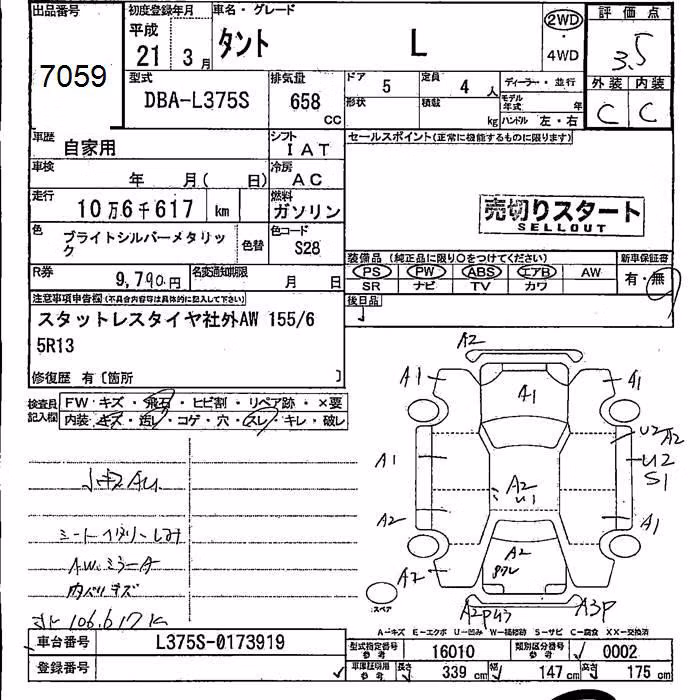 出品番号
7059
初度登録年月
平成
21 3月
車名・グレード
タント L
2WD
・
4WD
評価点
3.5
外装 内装
C C
型式
DBA-L375S
排気量
658
CC
ドア 5
定員 4人
ディーラー・並行
形状
積載 kg
モデル年式 年
ハンドル 左・右
車歴
自家用
シフト
IAT
セールスポイント(正常に機能するものに限ります)
車検
年 月( 日)
冷房
AC
走行
10万6千617 km
燃料
ガソリン
売切りスタート
SELLOUT
色
ブライトシルバーメタリック
色替
色コード
S28
装備品(純正品に限り○をつけてください)
新車保証書
PS PW ABS エアB AW
SR ナビ TV カワ
有・無
R券
9,790円
名変通知期限
月 日
後日品
注意事項申告欄(不具合内容等は具体的に記入して下さい)
スタットレスタイヤ社外AW 155/6
5R13
修復歴 有〔箇所 〕
検査員記入欄
FW・キズ・飛石・ヒビ割・リペア跡・×要
内装・キズ・汚レ・コゲ・穴・スレ・キレ・破レ
A2
A1
A1
A1
U2
A2
U2
S1
A1
A2
U1
A2
A1
A2
A2
A3P
AW
106,617K
スペア
A-キズ E-エクボ U-凹み W-補修跡 S-サビ C-腐食 XX-交換済
車台番号
L375S-0173919
型式指定番号
参考
16010
類別区分番号
参考
0002
登録番号
車庫証明用
参考
長さ 339 cm
幅 147 cm
高さ 175 cm